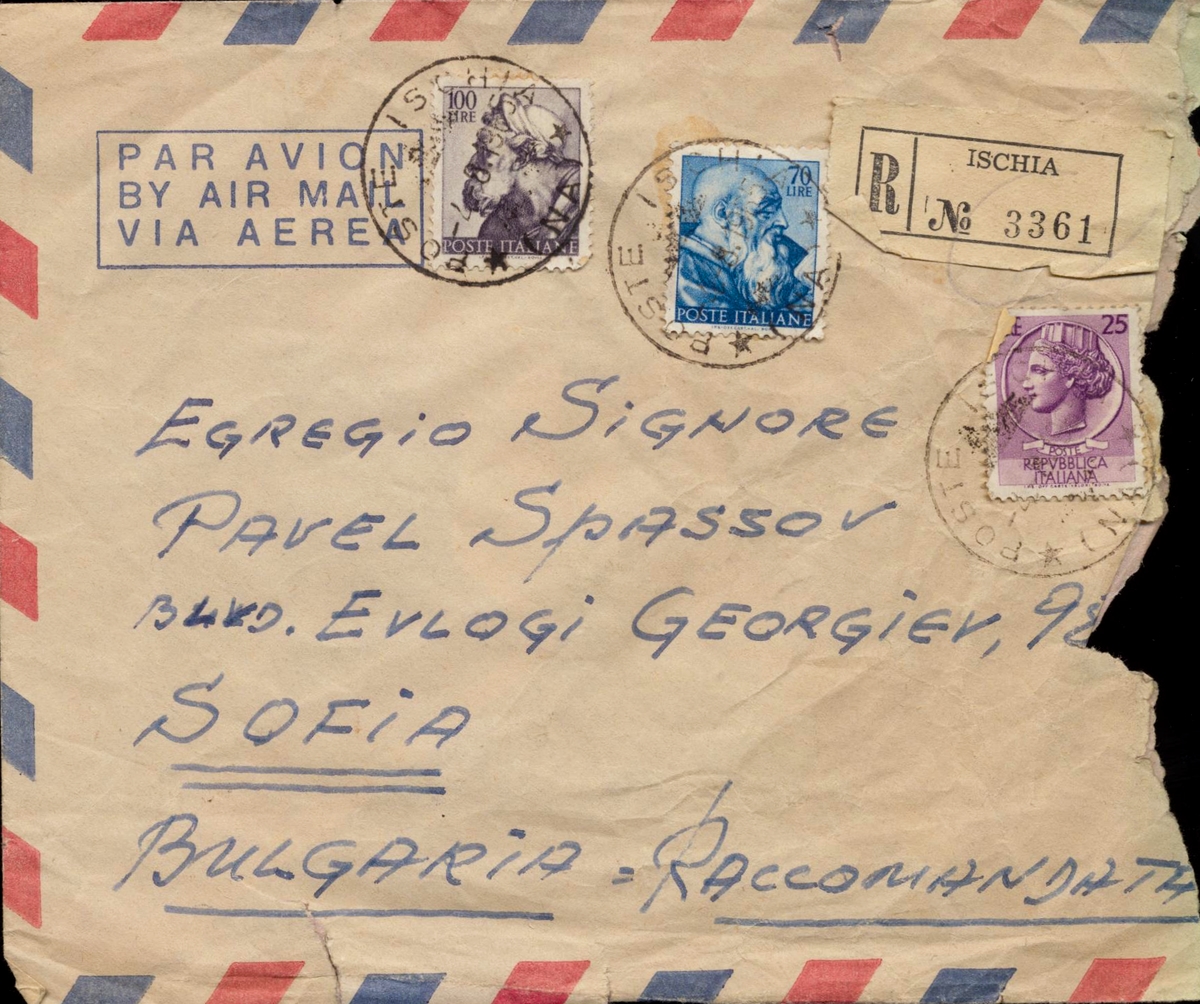 PAR AVION
BY AIR MAIL
VIA AEREA
100
LIRE
POSTE ITALIANE
POSTE ISCHIA (NA)
70
LIRE
POSTE ITALIANE
POSTE ISCHIA (NA)
R
ISCHIA
No 3361
25
POSTE
REPVBBLICA
ITALIANA
POSTE
NA)
EGREGIO SIGNORE
PAVEL SPASSOV
BLVD. EVLOGI GEORGIEV, 98
SOFIA
BULGARIA = RACCOMANDATA